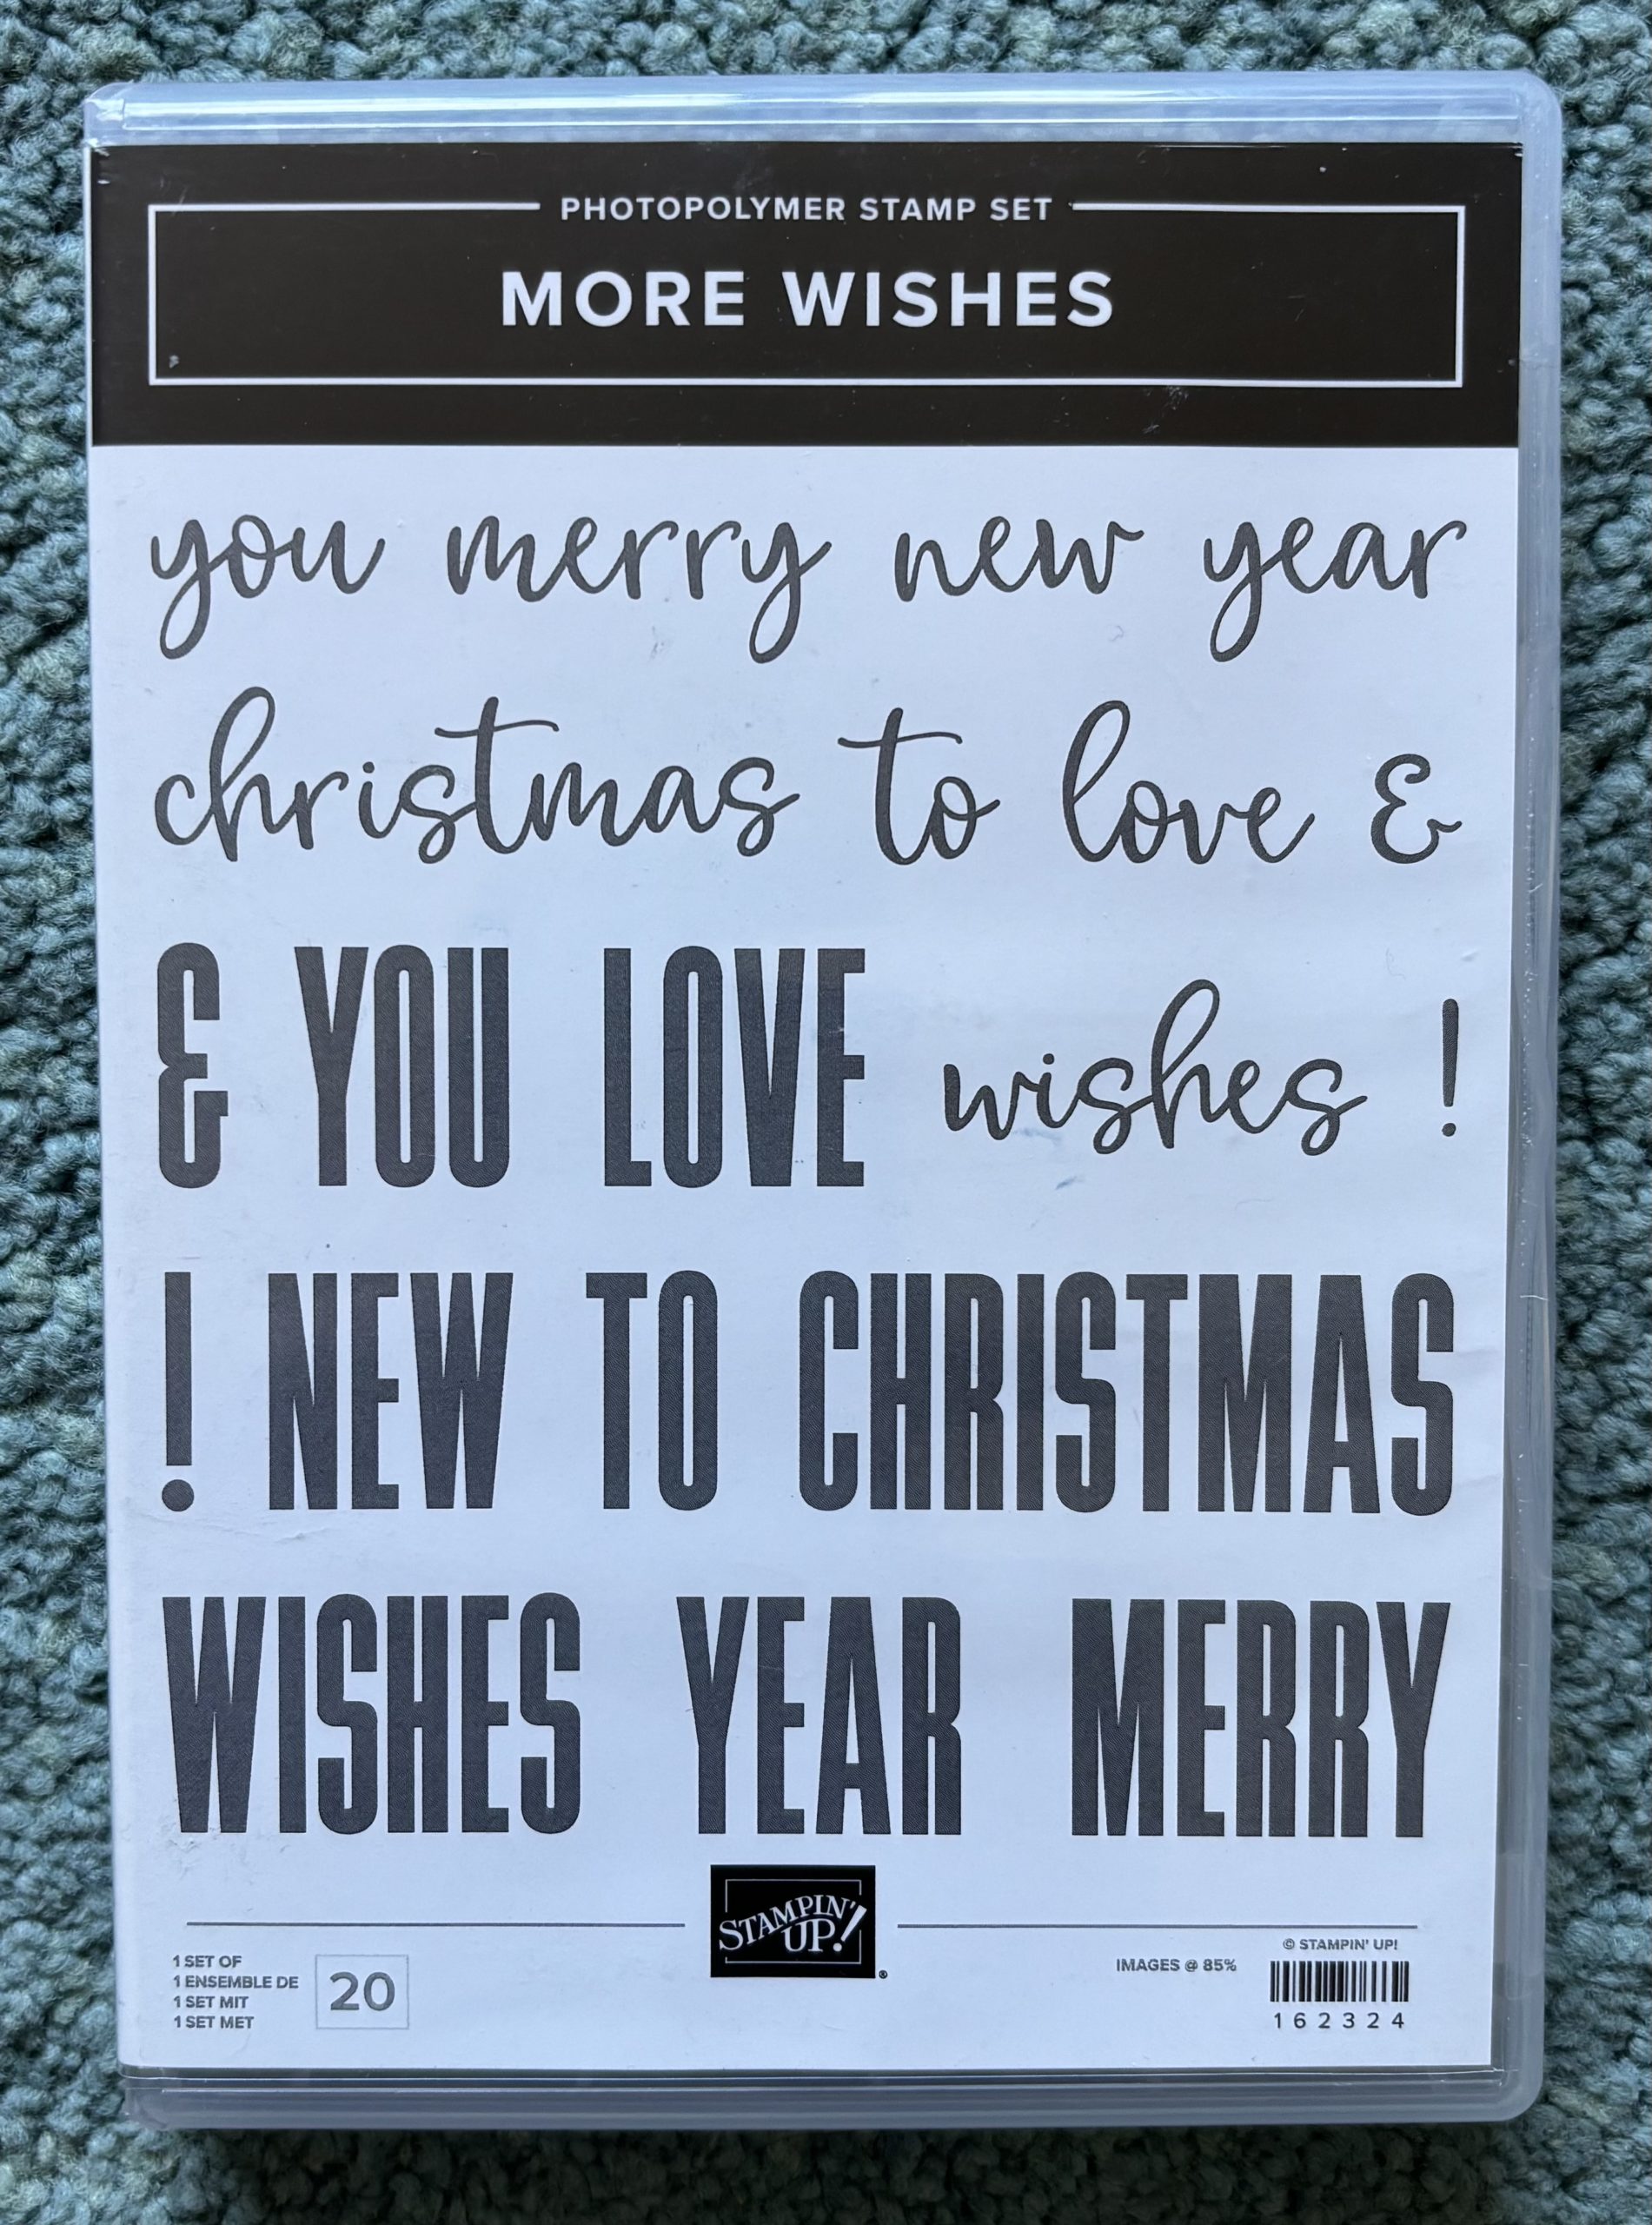 PHOTOPOLYMER STAMP SET
MORE WISHES
you merry new year
christmas to love &
& YOU LOVE wishes !
! NEW TO CHRISTMAS
WISHES YEAR MERRY
STAMPIN' UP! ®
1 SET OF
1 ENSEMBLE DE
1 SET MIT
1 SET MET
20
IMAGES @ 85%
© STAMPIN' UP!
162324